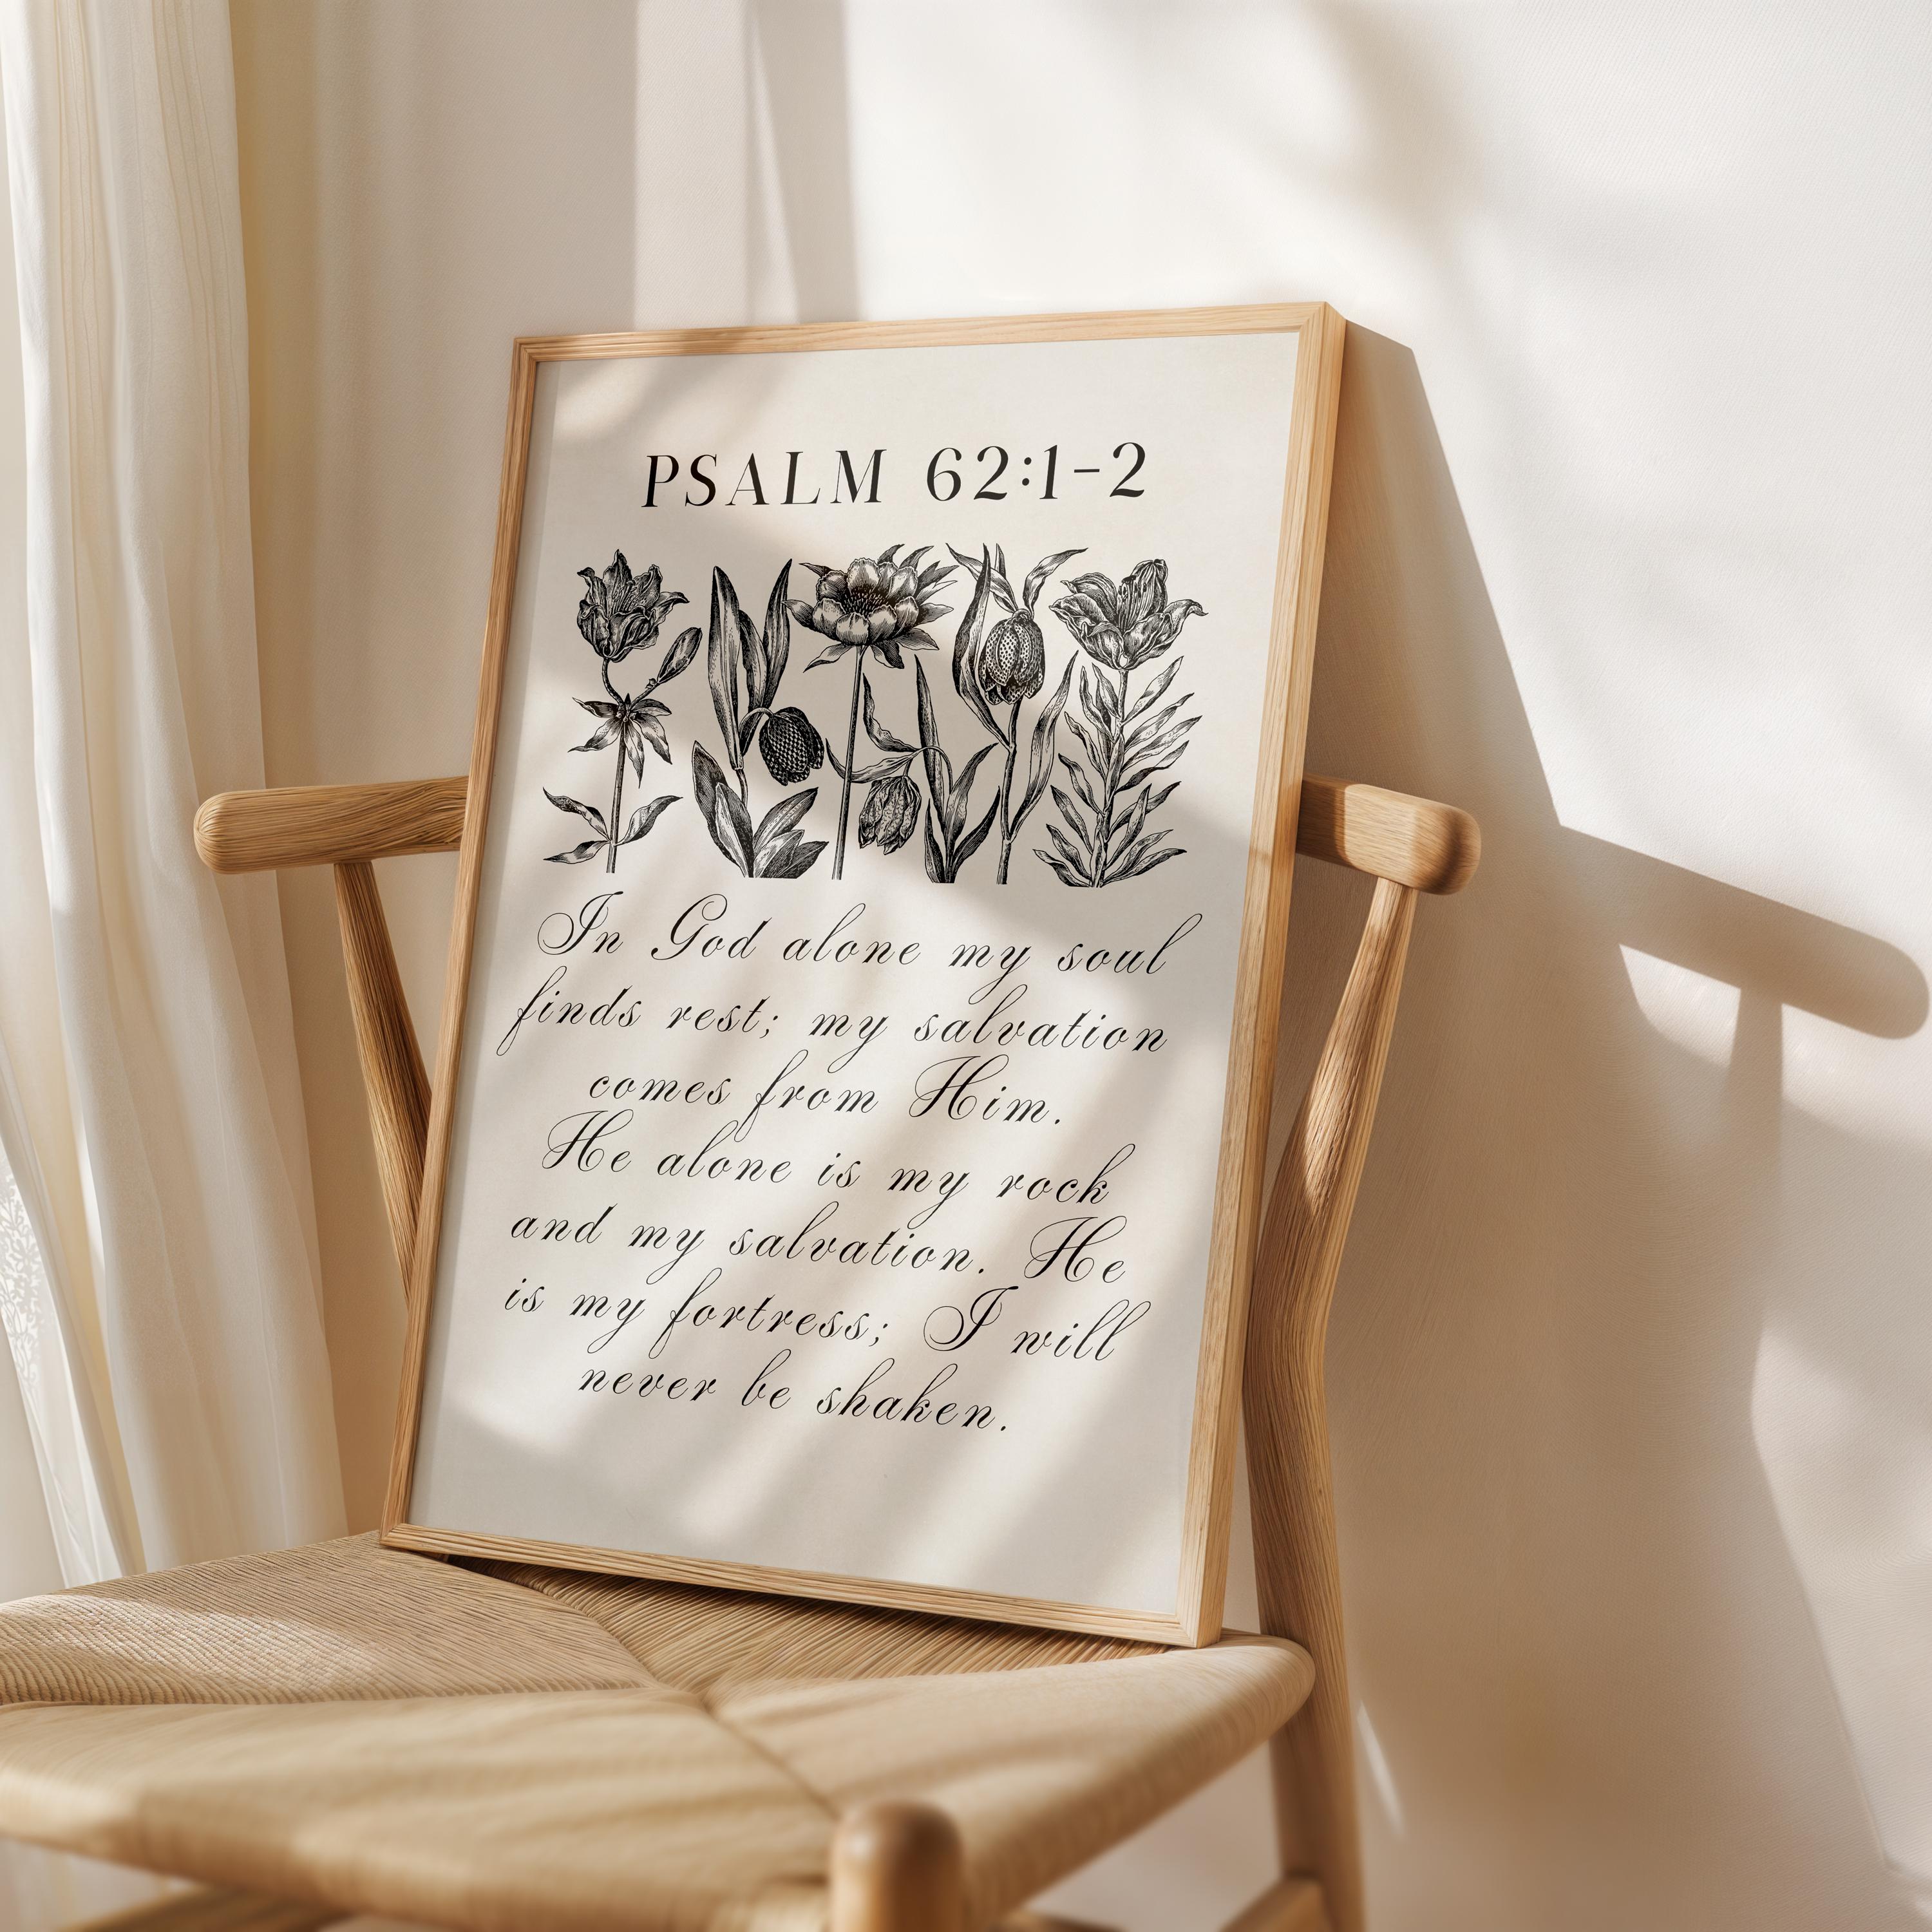 PSALM 62:1-2
In God alone my soul
finds rest; my salvation
comes from Him.
He alone is my rock
and my salvation. He
is my fortress; I will
never be shaken.